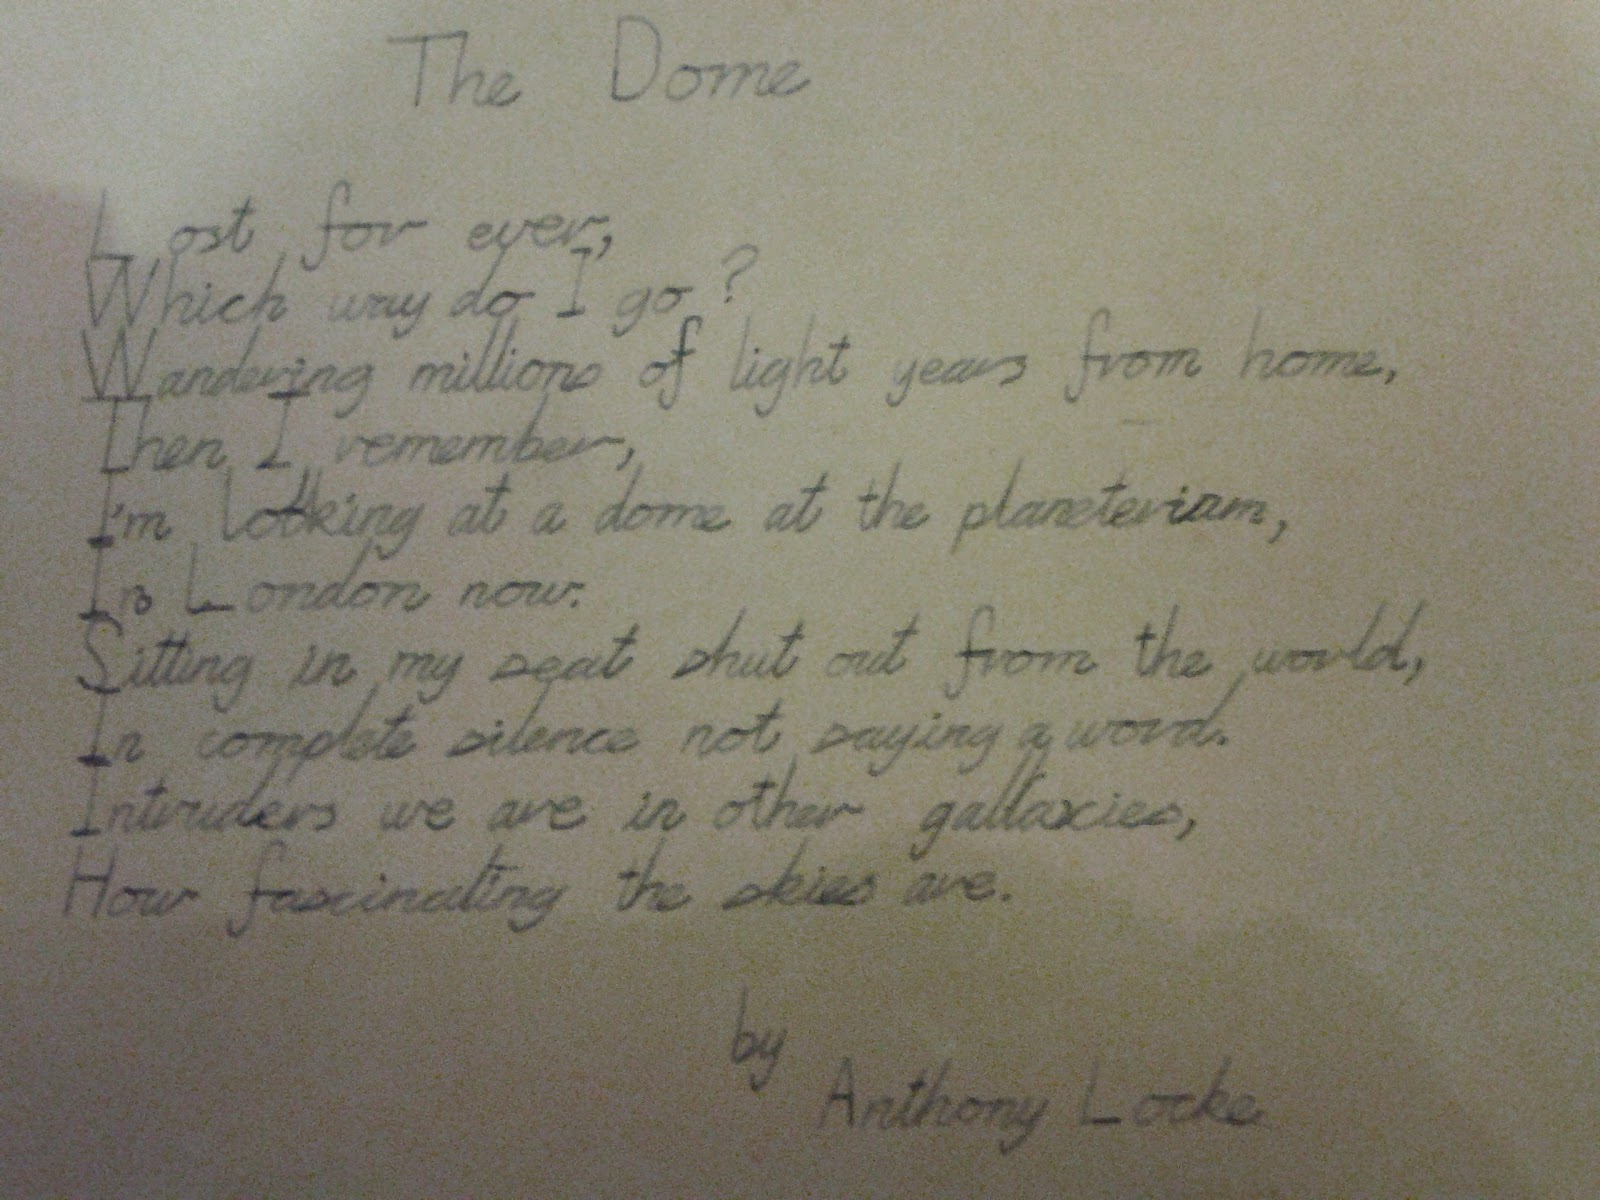 The Dome
Lost for ever,
Which way do I go?
Wandering millions of light years from home,
Then I remember,
I'm looking at a dome at the planeterium,
In London now.
Sitting in my seat shut out from the world,
In complete silence not saying a word.
Intruders we are in other gallaxies,
How fascinating the skies are.
by
Anthony Locke